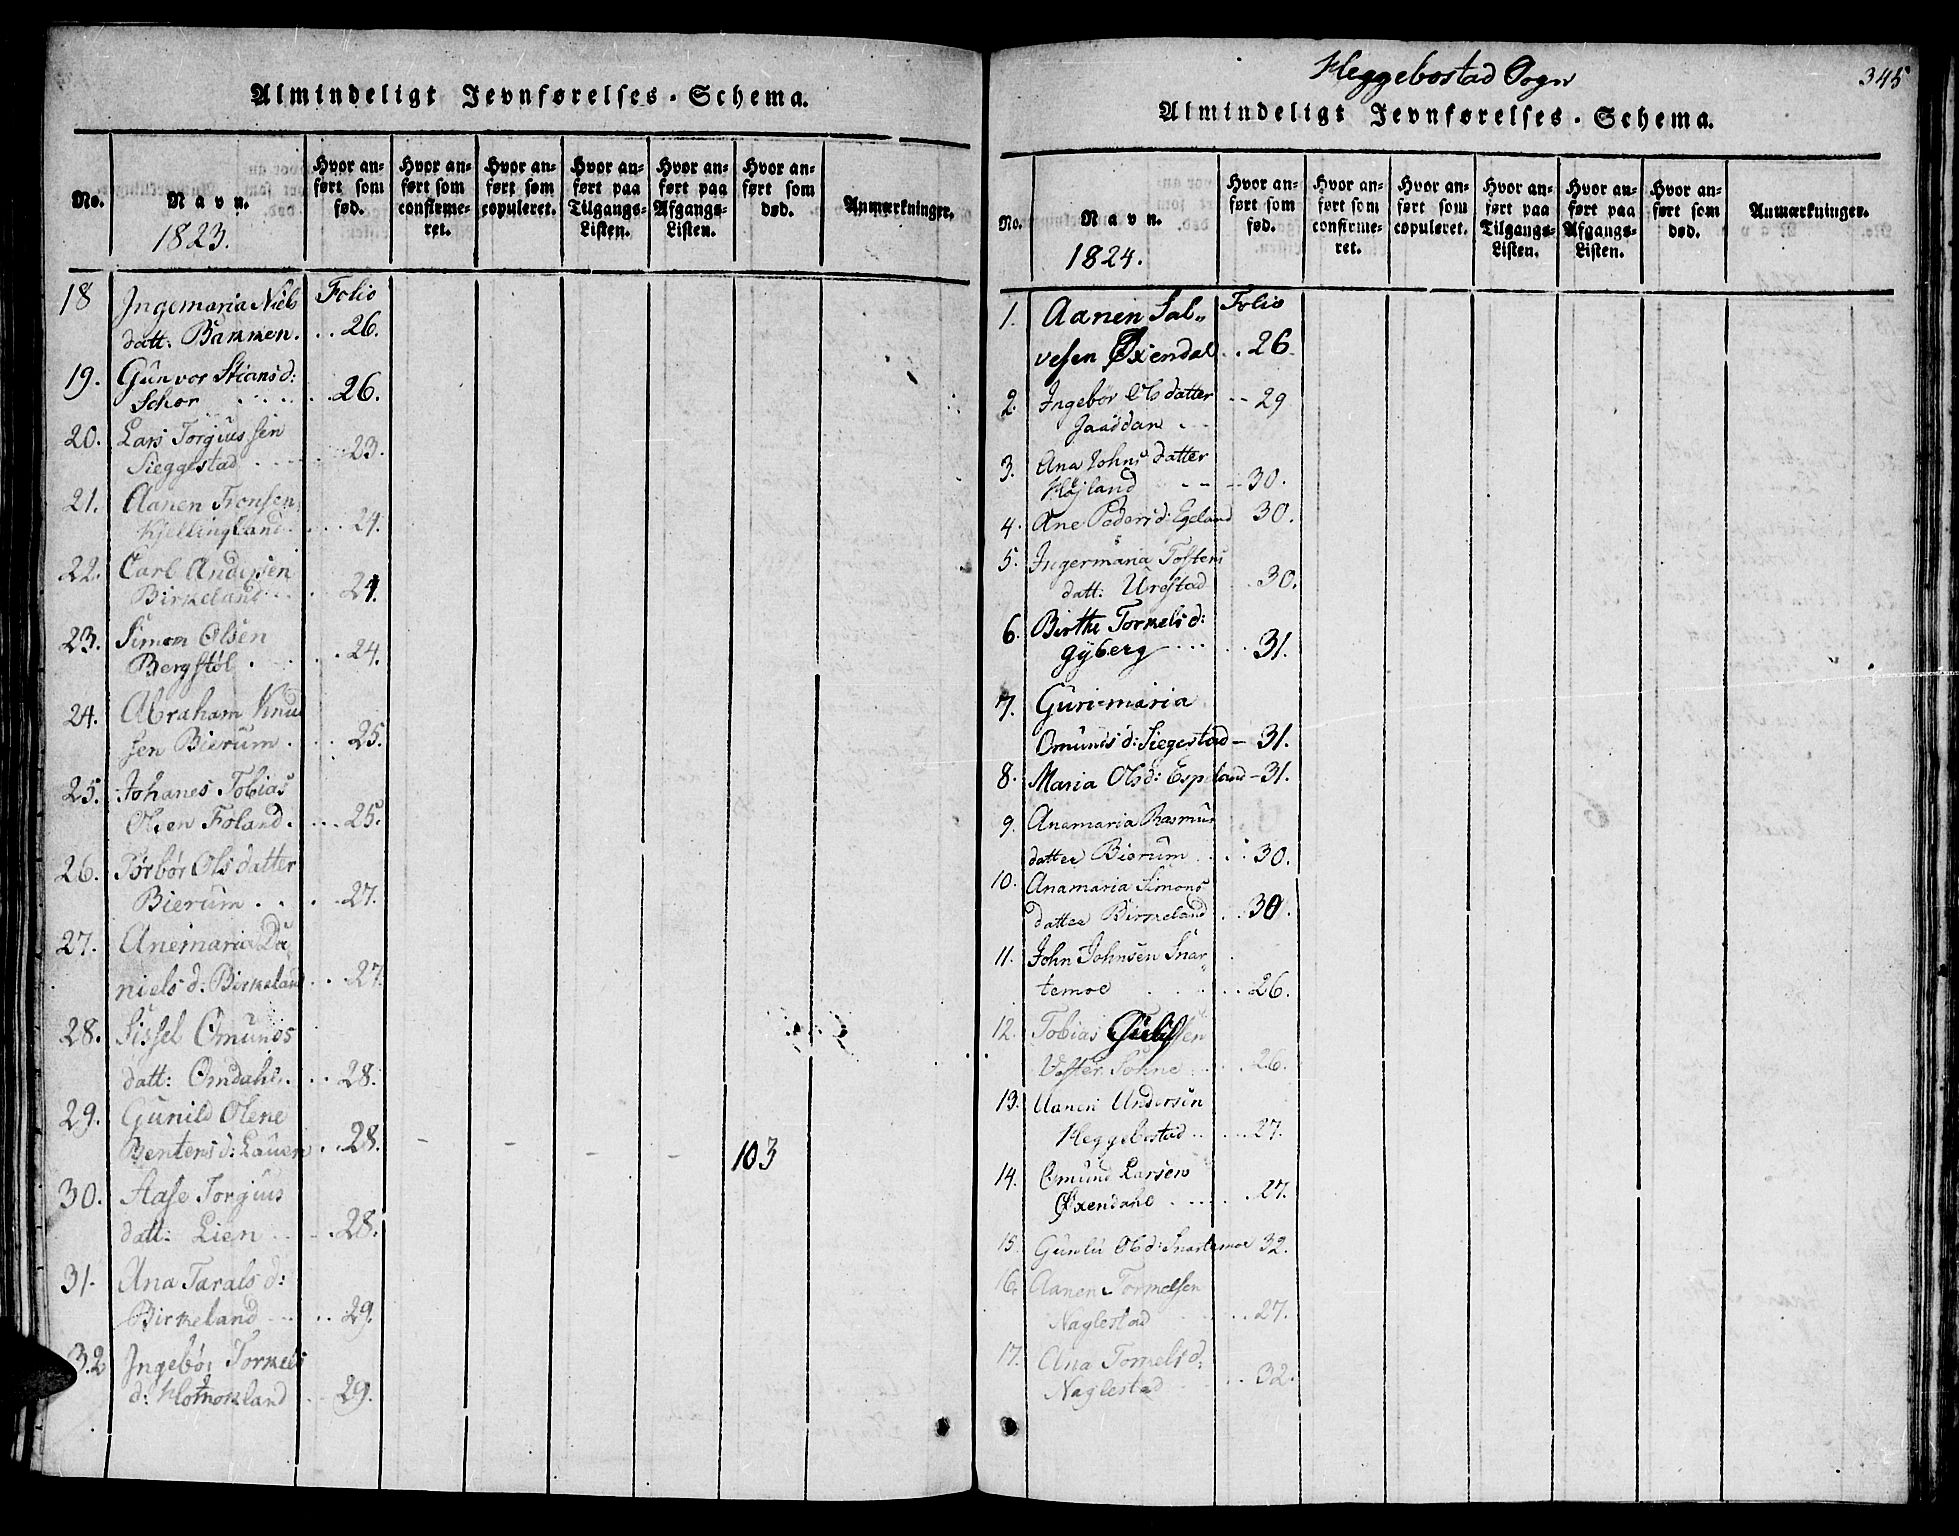 Almindeligt Jevnførelses-Schema.
No.
Navn.
1823.
Hvor an-
ført som
fød.
Hvor an-
ført som
confirme-
ret.
Hvor an-
ført som
copuleret.
Hvor an-
ført paa
Tilgangs-
Listen.
Hvor an-
ført paa
Afgangs-
Listen.
Hvor an-
ført som
død.
Anmærkninger.
18 Ingemaria Niels Folio
datt: Bakken. .. 26.
19. Gunvor Stians d:
Schor ..26.
20. Lars Torgiussen
Sieggestad ..... 23.
21. Aanen Tronsen
Kjellingland.... 24.
22. Carl Andersen
Birkeland... 24.
23. Simon Olsen
Bergstøl . ..24.
24. Abraham Knud
sen Bierum. ... 25.
25. Johanes Tobias
Olsen Foland. ...25.
26. Torbør Olsdatter
Bierum . . . .27.
27. Anemaria Da
niels d: Birkeland .. 27.
28. Sissel Omunds
datt: Omdahl. .. 28.
29. Gunild Olene
Bentens d: Lauen . .28. - - - - 103
30. Aase Torgius
datt: Lien .... .28.
31. Ana Tarals d:
Birkeland ... .. 29.
32 Ingebør Torkels
d: ... 29.
Heggebostad Sogn
345
Almindeligt Jevnførelses-Schema.
No.
Navn.
1824.
Hvor an-
ført som
fød.
Hvor an-
ført som
confirme-
ret.
Hvor an-
ført som
copuleret.
Hvor an-
ført paa
Tilgangs-
Listen.
Hvor an-
ført paa
Afgangs-
Listen.
Hvor an-
ført som
død.
Anmærkninger.
1. Aanen Sal- Folio
vesen Øxendal .. 26.
2. Ingebør Olsdatter -- 29
Jaaddan . --
3. Ana Johns datter
Højland -- -- 30.
4. Ane Peders d: Egeland 30.
5. Ingermaria Tostens
datt: Urestad .. 30.
6. Birthe Torkels d:
Gyberg .... .. 31.
7. Guri-maria
Omunds d: Siegestad - 31.
8. Maria Ols d: Espeland - 31.
9. Anamaria Rasmus
datter Bierum . . . 30.
10. Anamaria Simons
datter Birkeland . . 30.
11. John Johnsen Snar
temoe . . ... 26.
12. Tobias
Vester Søhne .. .. 26.
13. Aanen Andersen
Heggebostad .. ... 27.
14. Omund Larsen
Øxendahl .... .. 27.
15. Gunlu Ols d: Snartemoe 32.
16. Aanen Torkelsen
Naglestad ... 27.
17. Ana Torkels d:
Naglestad .. 32.